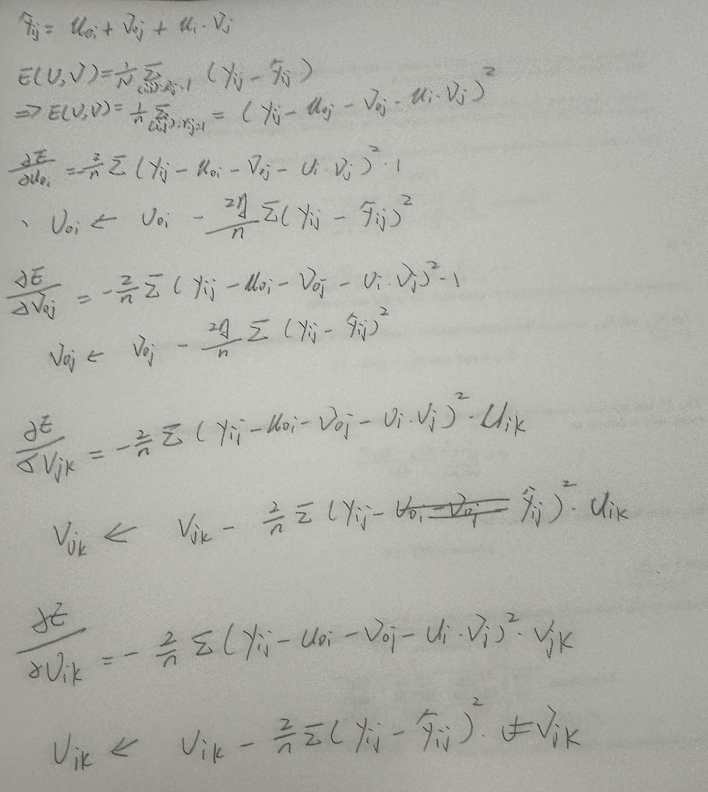 ŷij = u0i + v0j + ui · vj
E(U,V) = 1/N Σ(i,j):rij=1 (yij − ŷij)
⇒ E(U,V) = 1/n Σ(i,j):rij=1 = (yij − u0j − v0j − ui · vj)²
∂E/∂u0i = −2/n Σ (yij − u0i − v0j − ui · vj)² · 1
U0i ← U0i − 2η/n Σ (yij − ŷij)²
∂E/∂V0j = −2/n Σ (yij − u0i − v0j − ui · vj)² · 1
V0j ← V0j − 2η/n Σ (yij − ŷij)²
∂E/∂Vjk = −2/n Σ (yij − u0i − v0j − ui · vj)² · Uik
Vjk ← Vjk − 2/n Σ (yij − ŷij)² · Uik
∂E/∂Uik = −2/n Σ (yij − u0i − v0j − ui · vj)² · Vjk
Uik ← Uik − 2/n Σ (yij − ŷij)² · Vjk